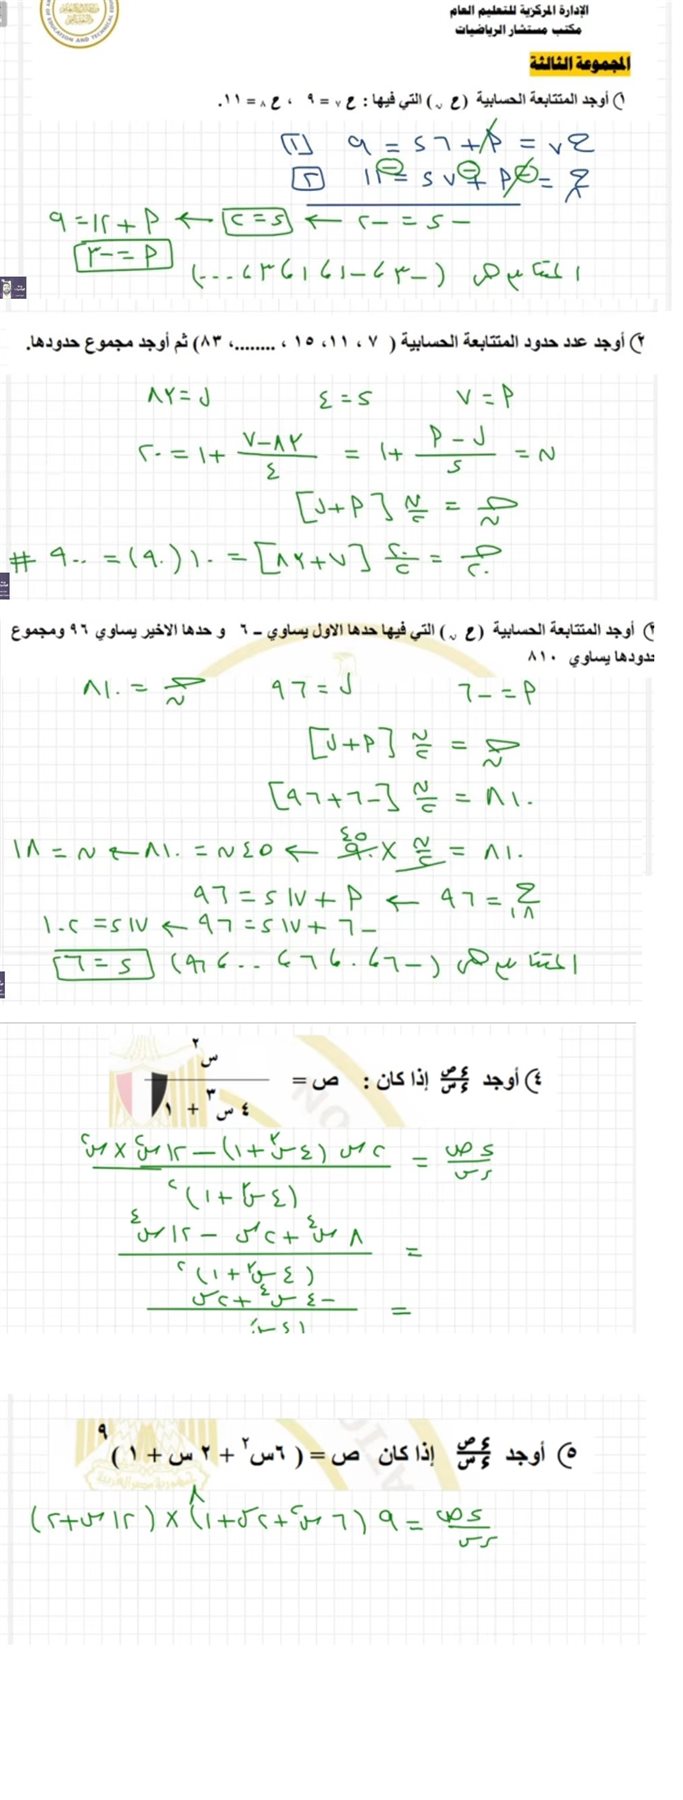 الإدارة المركزية للتعليم العام
مكتب مستشار الرياضيات
المجموعة الثالثة
١) أوجد المتتابعة الحسابية (ع ن) التي فيها : ع ٧ = ٩ ، ع ٨ = ١١.
ع٧ = P + ٦ د = ٩ (١)
ع٨ = P + ٧ د = ١١ (٢)
- د = -٢ ← د = ٢ ← P + ١٢ = ٩
P = -٣
المتتابعة هى (-٣، -١، ١، ٣، ...)
٢) أوجد عدد حدود المتتابعة الحسابية ( ٧ ، ١١، ١٥ ، ........، ٨٣) ثم أوجد مجموع حدودها.
P = ٧ د = ٤ ل = ٨٣
ن = (ل - P)/د + ١ = (٨٣ - ٧)/٤ + ١ = ٢٠
جـ ن = ن/٢ [P + ل]
جـ ٢٠ = ٢٠/٢ [٧ + ٨٣] = ١٠ (٩٠) = ٩٠٠ #
٣) أوجد المتتابعة الحسابية (ع ن) التي فيها حدها الاول يساوي – ٦ و حدها الاخير يساوي ٩٦ ومجموع
حدودها يساوي ٨١٠
P = -٦ ل = ٩٦ جـ ن = ٨١٠
جـ ن = ن/٢ [P + ل]
٨١٠ = ن/٢ [-٦ + ٩٦]
٨١٠ = ن/٢ × ٩٠ ٤٥ ← ٤٥ ن = ٨١٠ ← ن = ١٨
ع١٨ = ٩٦ ← P + ١٧ د = ٩٦
-٦ + ١٧ د = ٩٦ ← ١٧ د = ١٠٢
المتتابعة هى (-٦، ٠، ٦، ...، ٩٦) د = ٦
٤) أوجد ءص/ءس إذا كان : ص = س٢ / (٤ س٣ + ١)
دص/دس = (٢س (٤س٣ + ١) - ١٢س٢ × س٢) / (٤س٣ + ١)٢
= (٨س٤ + ٢س - ١٢س٤) / (٤س٣ + ١)٢
= -٤س٤ + ٢س
٥) أوجد ءص/ءس إذا كان ص = ( ٦س٢ + ٢ س + ١ )٩
دص/دس = ٩ (٦س٢ + ٢س + ١)٨ × (١٢س + ٢)